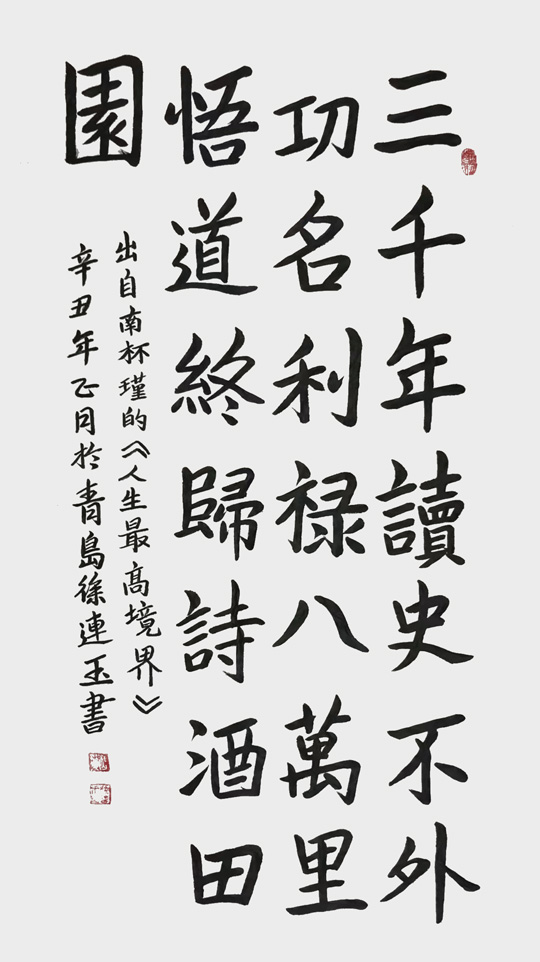 三千年讀史不外
功名利禄八萬里
悟道終歸詩酒田
園
出自南杯瑾的《人生最高境界》
辛丑年正月於青島徐連玉書